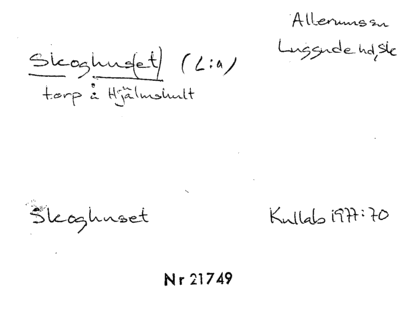 Allerums sn
Luggude hd, Sk
Skoghus(et) (L:a)
torp å Hjälmshult
Skoghuset
Kullab 1977:70
Nr 21749